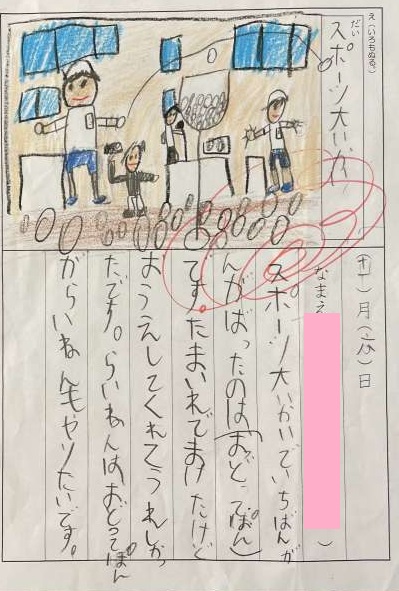 え（いろもぬる。）
だい
スポーツ大いかい
月 日
なまえ（ ）
スポーツ大いかいでいちばんが
んがばったのは(おどってぽん)
です。たまいれでまけたけど
おうえしてくれてうれしかっ
たです。らいねんはおどってぽん
がらいねんもやりたいです。